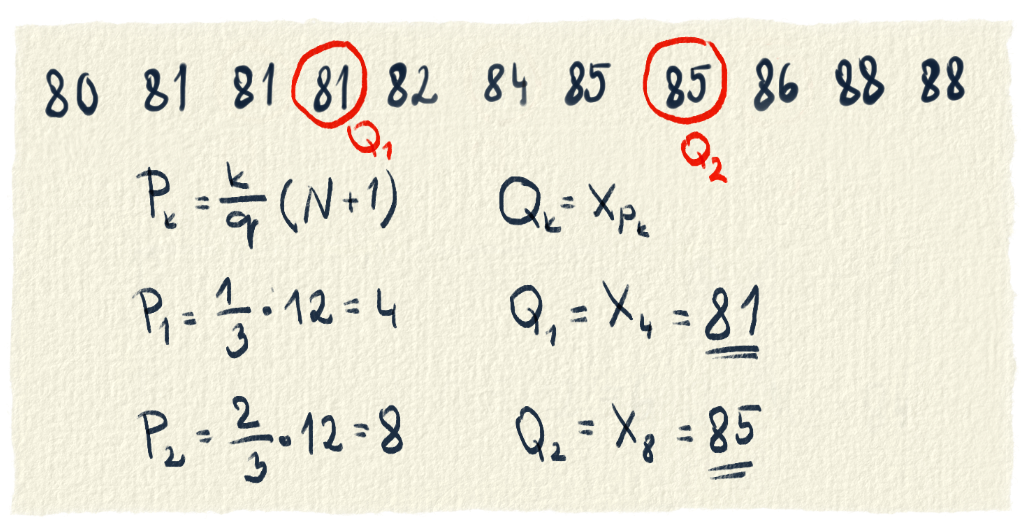 80 81 81 81 82 84 85 85 86 88 88
Q₁ Q₂
Pₖ = k/q (N+1) Qₖ = X_Pₖ
P₁ = 1/3 · 12 = 4 Q₁ = X₄ = 81
P₂ = 2/3 · 12 = 8 Q₂ = X₈ = 85